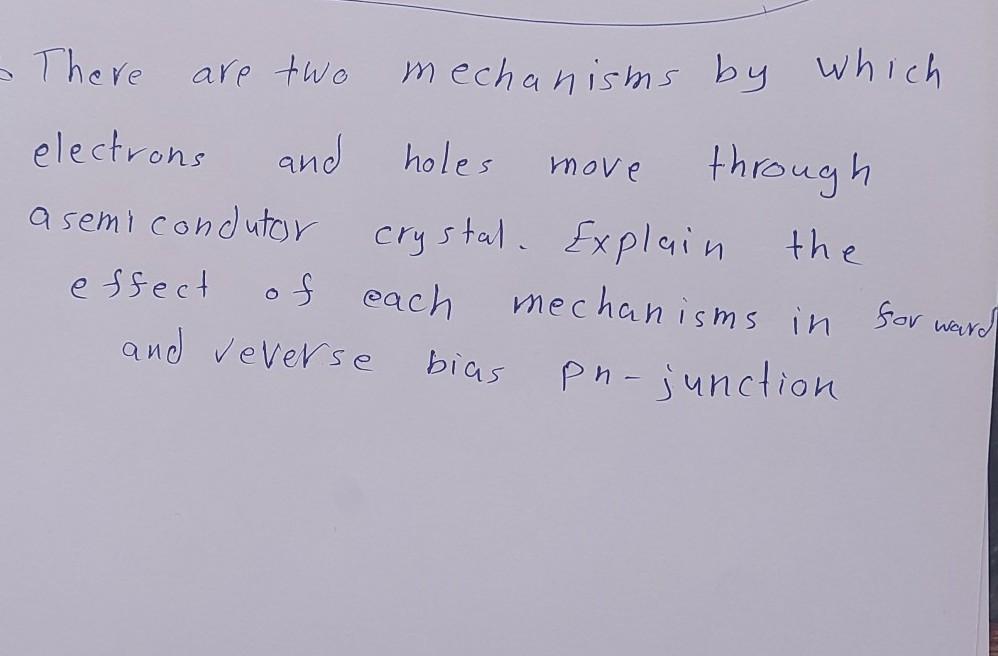 There are two mechanisms by which
electrons and holes move through
a semicondutor crystal. Explain the
effect of each mechanisms in forward
and reverse bias pn-junction